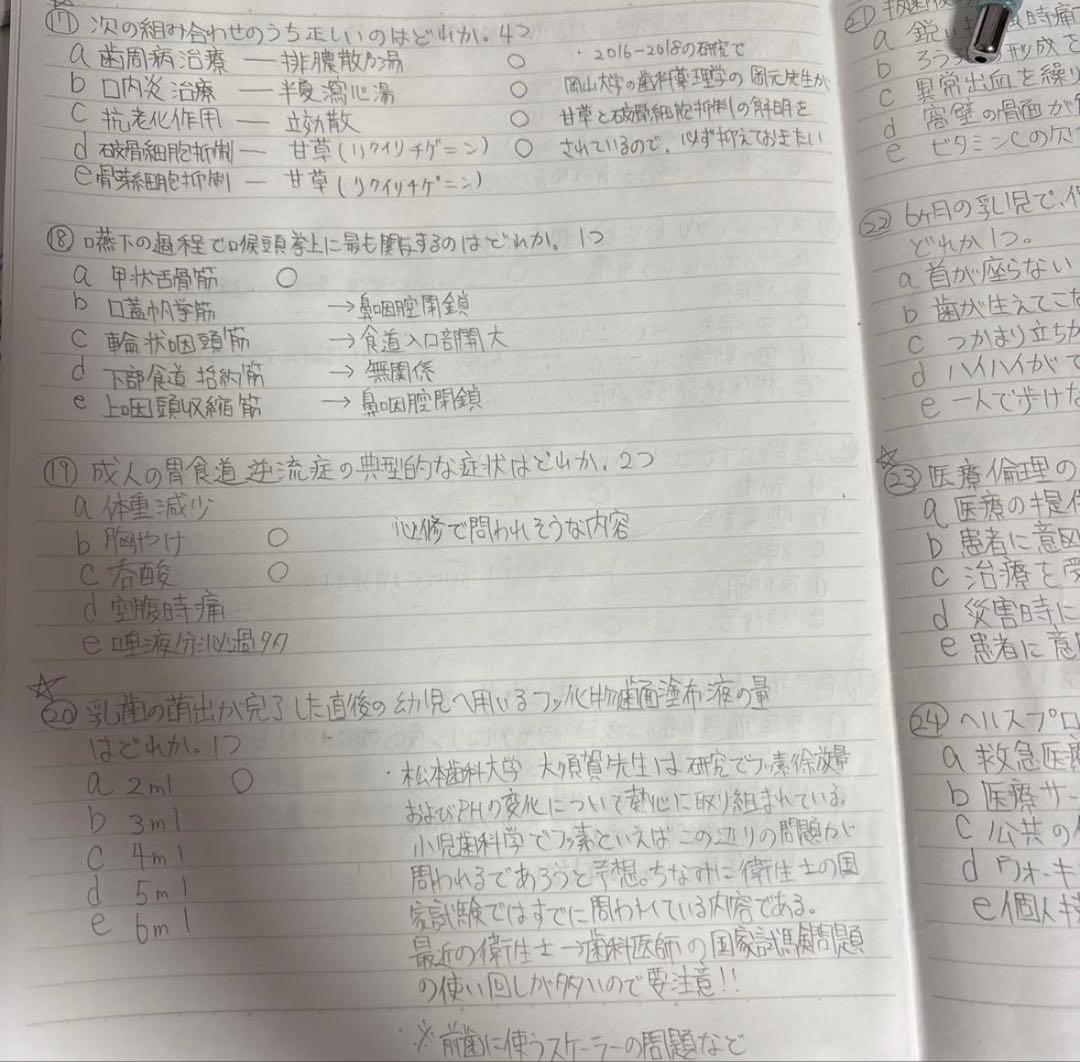 ⑰ 次の組み合わせのうち正しいのはどれか。4つ
a 歯周病治療 ― 排膿散及湯 ○
b 口内炎治療 ― 半夏瀉心湯 ○
c 抗老化作用 ― 立効散 ○
d 破骨細胞抑制 ― 甘草(リクイリチゲニン) ○
e 骨芽細胞抑制 ― 甘草(リクイリチゲニン)
・2016-2018の研究で
岡山大学の歯科薬理学の岡元先生が
甘草と破骨細胞抑制の解明を
されているので、必ず抑えておきたい
⑱ 嚥下の過程で喉頭挙上に最も関与するのはどれか。1つ
a 甲状舌骨筋 ○
b 口蓋帆挙筋 →鼻咽腔閉鎖
c 輪状咽頭筋 →食道入口部開大
d 下部食道括約筋 → 無関係
e 上咽頭収縮筋 → 鼻咽腔閉鎖
⑲ 成人の胃食道逆流症の典型的な症状はどれか。2つ
a 体重減少
b 胸やけ ○
c 呑酸 ○
d 空腹時痛
e 唾液分泌過多
必修で問われそうな内容
☆
⑳ 乳歯の萌出が完了した直後の幼児へ用いるフッ化物歯面塗布液の量
はどれか。1つ
a 2ml ○
b 3ml
c 4ml
d 5ml
e 6ml
・松本歯科大学 大須賀先生は研究でフッ素徐放量
およびPHの変化について熱心に取り組まれている。
小児歯科学でフッ素といえばこの辺りの問題が
問われるであろうと予想。ちなみに衛生士の国
家試験ではすでに問われている内容である。
最近の衛生士→歯科医師の国家試験問題
の使い回しが多いので要注意!!
※前歯に使うスケーラーの問題など
㉑
a 鋭い
b
c 異常出血を繰り
d 窩壁の骨面が
e ビタミンCの欠
㉒ 6ヶ月の乳児で、
どれか1つ。
a 首が座らない
b 歯が生えてこな
c つかまり立ちが
d ハイハイがで
e 一人で歩けな
☆
㉓ 医療倫理の
a 医療の提供
b 患者に意図
c 治療を受
d 災害時に
e 患者に意
㉔ ヘルスプロ
a 救急医療
b 医療サー
c 公共の
d ウォーキ
e 個人